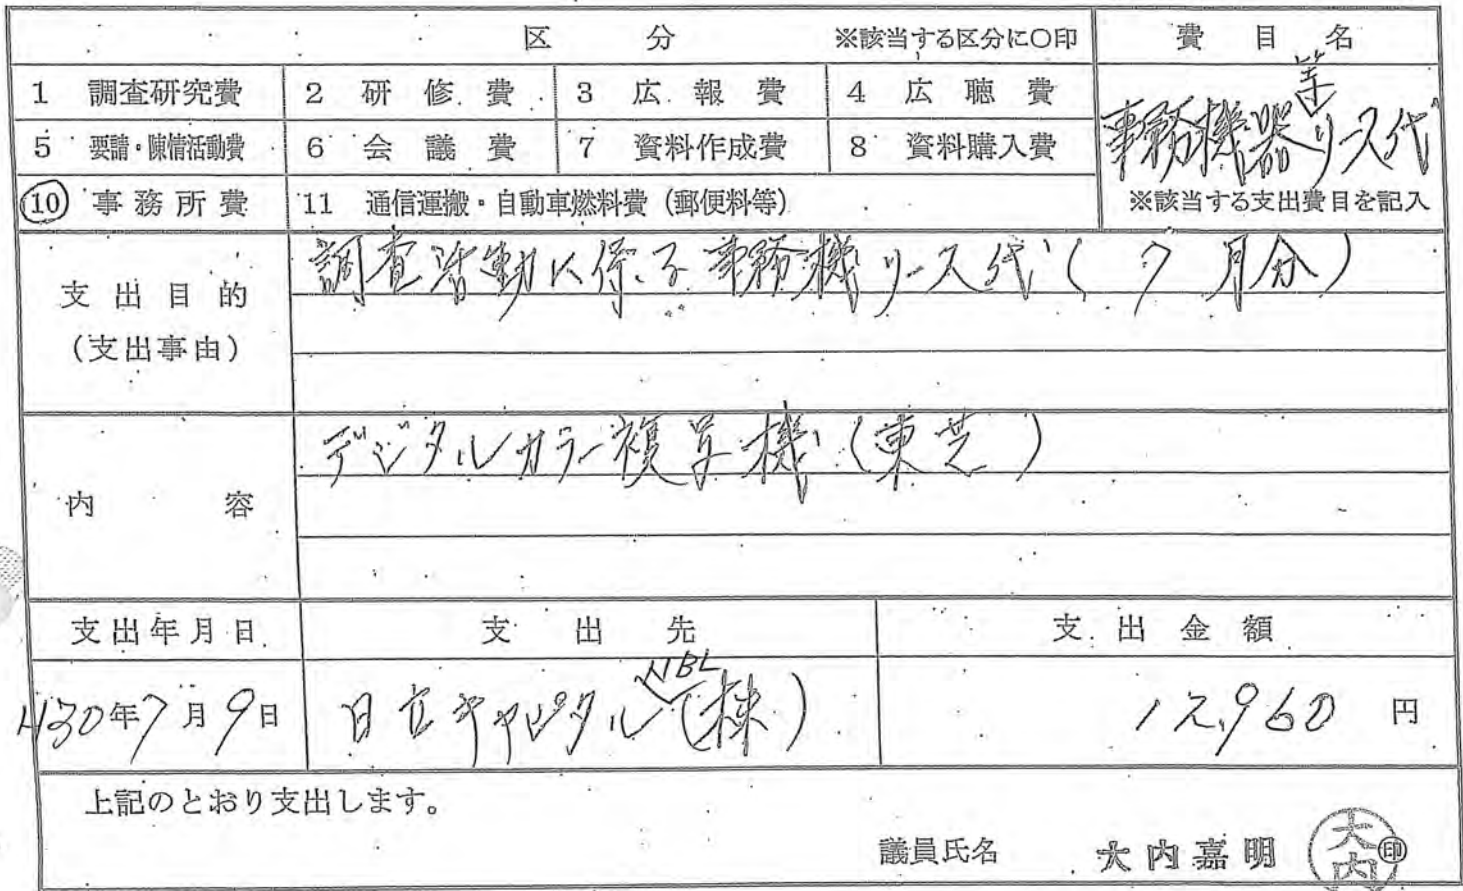 区 分 ※該当する区分に○印
費 目 名
1 調査研究費 2 研修費 3 広報費 4 広聴費
等
事務機器リース代
5 要請・陳情活動費 6 会議費 7 資料作成費 8 資料購入費
10 事務所費 11 通信運搬・自動車燃料費(郵便料等)
※該当する支出費目を記入
支出目的
(支出事由)
調査活動に係る事務機リース代(7月分)
内 容
デジタルカラー複写機(東芝)
支出年月日 支出先 支出金額
NBL
H30年7月9日 日立キャピタル(株) 12,960円
上記のとおり支出します。
議員氏名 大内嘉明 印
大内